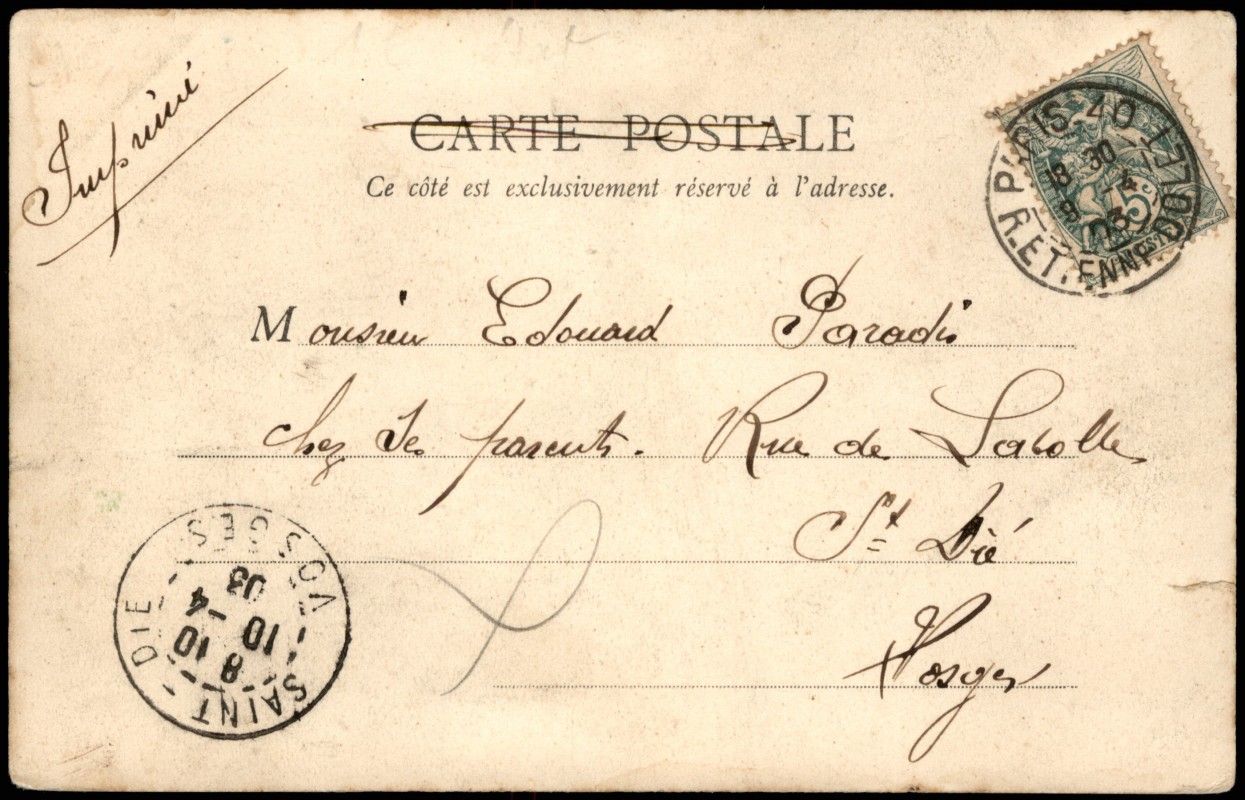 Imprimé
CARTE POSTALE
Ce côté est exclusivement réservé à l'adresse.
PARIS 40
18 30
8 -4
03
R. ETIENNE DOLET
5
Monsieur Edouard Paradis
chez ses parents. Rue de Labolle
St Dié
Vosges
SAINT-DIE
8 10
10 -4
03
VOSGES